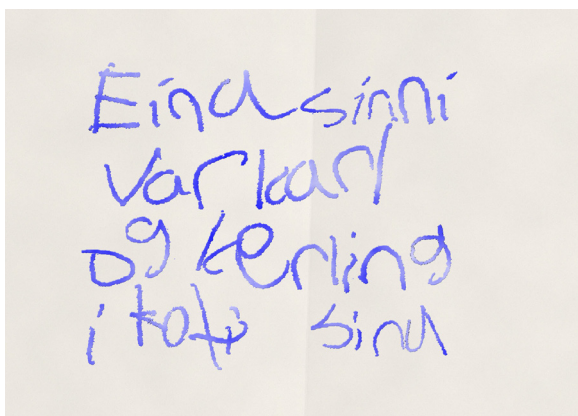 Einu sinni
var karl
og kerling
í koti sínu